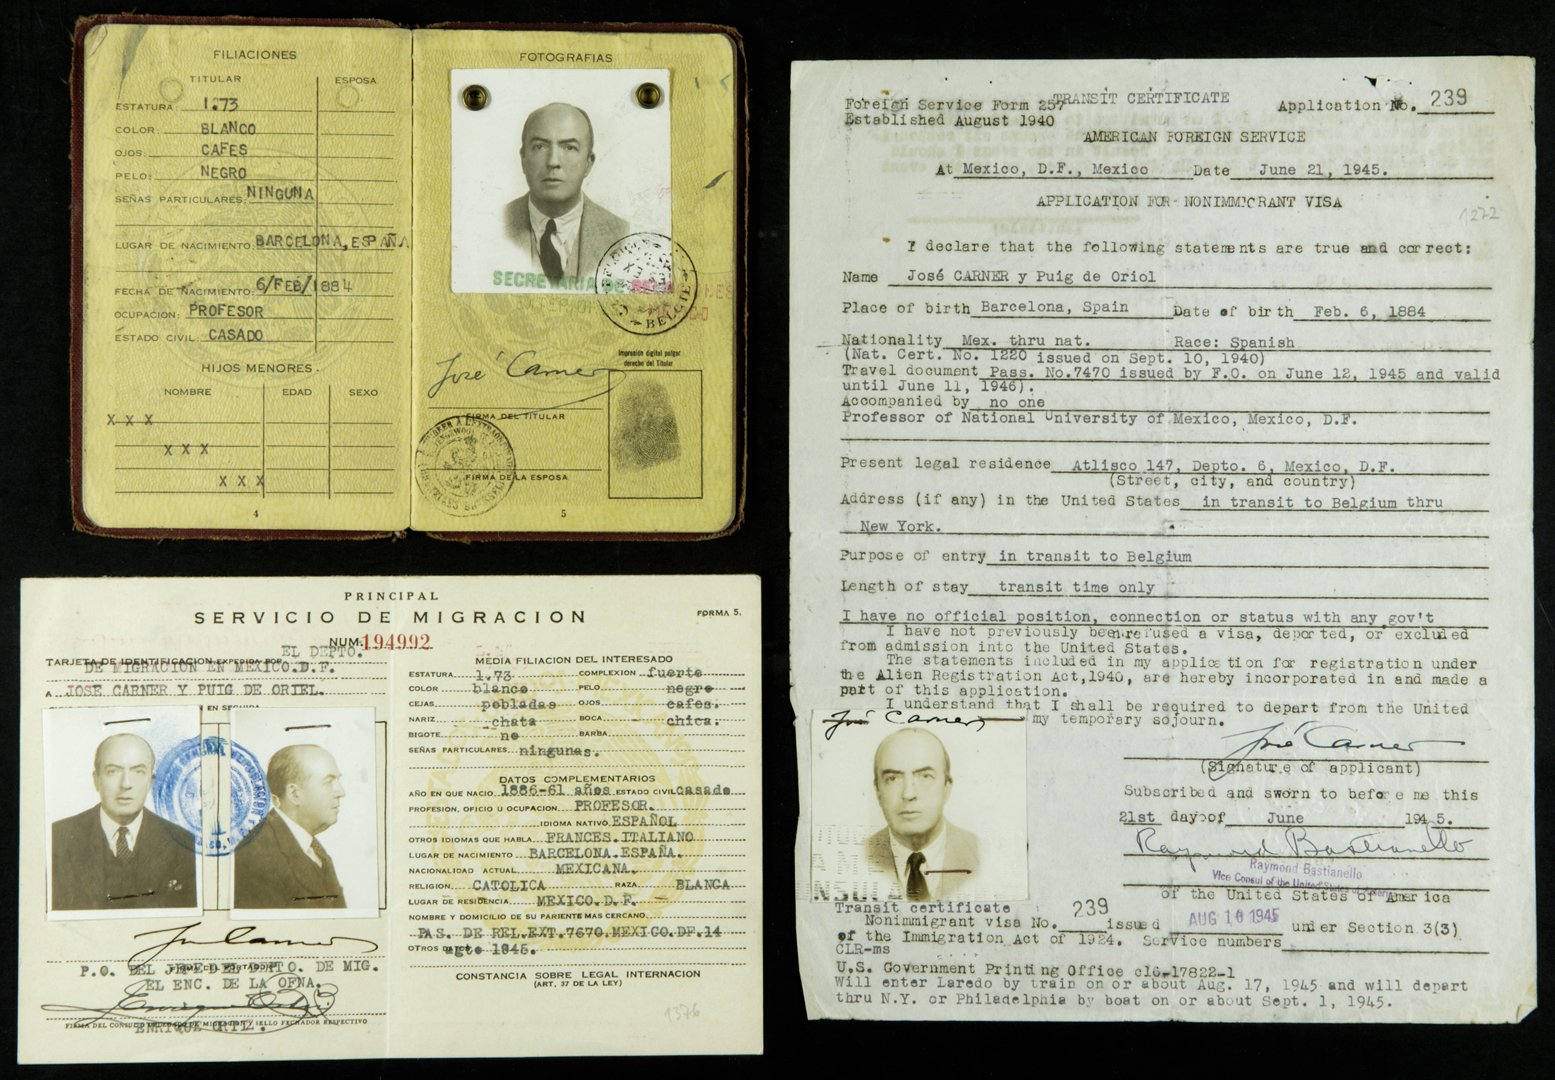 FILIACIONES
TITULAR
ESPOSA
ESTATURA: 1.73
COLOR: BLANCO
OJOS: CAFES
PELO: NEGRO
SEÑAS PARTICULARES: NINGUNA
LUGAR DE NACIMIENTO: BARCELONA, ESPAÑA
FECHA DE NACIMIENTO: 6/FEB/1884
OCUPACION: PROFESOR
ESTADO CIVIL: CASADO
HIJOS MENORES.
NOMBRE EDAD SEXO
X X X
X X X
X X X
4
FOTOGRAFIAS
SECRETARIA DE RELACIONES
EXTERIORES
MEXICO
BELGIE
José Carner
FIRMA DEL TITULAR
Impresión digital pulgar
derecho del Titular
FIRMA DE LA ESPOSA
5
PRINCIPAL
SERVICIO DE MIGRACION
FORMA 5.
NUM. 194992
EL DEPTO.
TARJETA DE IDENTIFICACION EXPEDIDA POR
DE MIGRACION EN MEXICO.D.F.
A JOSE CARNER Y PUIG DE ORIEL.
EN SEGUIDA
José Carner
FIRMA DEL PORTADOR
P.O. DEL JEFE DEL DPTO. DE MIG.
EL ENC. DE LA OFNA.
ENRIQUE ORTIZ.
FIRMA DEL CONSUL O DELEGADO DE MIGRACION Y SELLO FECHADOR RESPECTIVO
MEDIA FILIACION DEL INTERESADO
ESTATURA 1.73 COMPLEXION fuerte
COLOR blanco PELO negro
CEJAS pobladas OJOS cafes.
NARIZ chata BOCA chica.
BIGOTE no BARBA
SEÑAS PARTICULARES ningunas.
DATOS COMPLEMENTARIOS
AÑO EN QUE NACIO 1886-61 años ESTADO CIVIL casado
PROFESION, OFICIO U OCUPACION PROFESOR.
IDIOMA NATIVO ESPAÑOL
OTROS IDIOMAS QUE HABLA FRANCES. ITALIANO
LUGAR DE NACIMIENTO BARCELONA. ESPAÑA.
NACIONALIDAD ACTUAL MEXICANA.
RELIGION CATOLICA RAZA BLANCA
LUGAR DE RESIDENCIA MEXICO. D. F.
NOMBRE Y DOMICILIO DE SU PARIENTE MAS CERCANO
PAS. DE REL.EXT.7670.MEXICO.DF.14
OTROS DATOS agto 1945.
CONSTANCIA SOBRE LEGAL INTERNACION
(ART. 37 DE LA LEY)
1376
TRANSIT CERTIFICATE
Foreign Service Form 257
Established August 1940
Application No. 239
AMERICAN FOREIGN SERVICE
At Mexico, D.F., Mexico Date June 21, 1945.
APPLICATION FOR NONIMMIGRANT VISA
1272
I declare that the following statements are true and correct:
Name José CARNER y Puig de Oriol
Place of birth Barcelona, Spain Date of birth Feb. 6, 1884
Nationality Mex. thru nat. Race: Spanish
(Nat. Cert. No. 1220 issued on Sept. 10, 1940)
Travel document Pass. No.7470 issued by F.O. on June 12, 1945 and valid
until June 11, 1946).
Accompanied by no one
Professor of National University of Mexico, Mexico, D.F.
Present legal residence Atlisco 147, Depto. 6, Mexico, D.F.
(Street, city, and country)
Address (if any) in the United States in transit to Belgium thru
New York.
Purpose of entry in transit to Belgium
Length of stay transit time only
I have no official position, connection or status with any gov't
I have not previously been refused a visa, deported, or excluded
from admission into the United States.
The statements included in my application for registration under
the Alien Registration Act,1940, are hereby incorporated in and made a
part of this application.
I understand that I shall be required to depart from the United
my temporery sojourn.
José Carner
José Carner
(Signature of applicant)
Subscribed and sworn to before me this
21st day of June 1945.
Raymond Bastianello
Raymond Bastianello
Vice Consul of the United States of America
of the United States of America
Transit certificate
Nonimmigrant visa No. 239 issued AUG 10 1945 under Section 3(3)
of the Immigration Act of 1924. Service numbers
CLR-ms
U.S. Government Printing Office c16-17822-1
Will enter Laredo by train on or about Aug. 17, 1945 and will depart
thru N.Y. or Philadelphia by boat on or about Sept. 1, 1945.